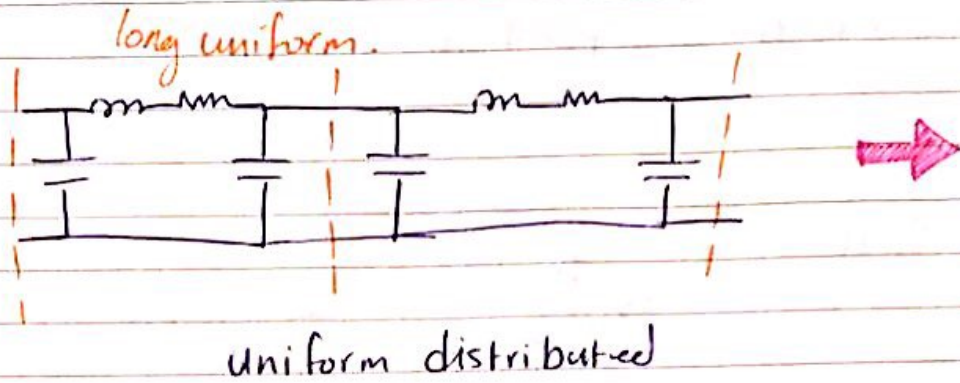 long uniform.
uniform distributed